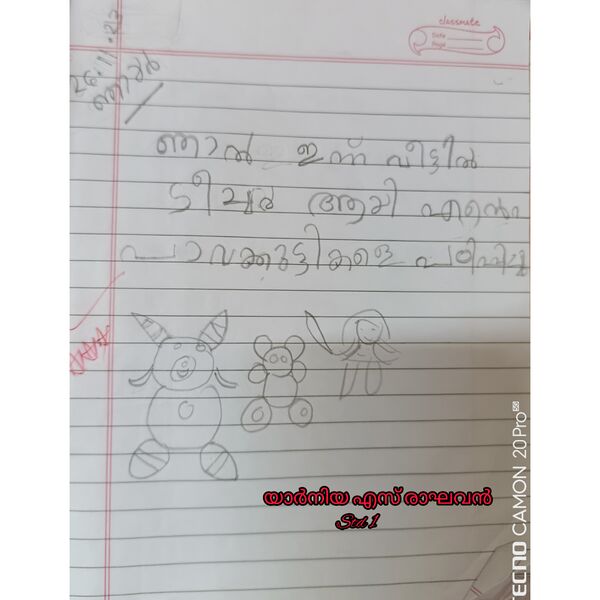 classmate
Date
Page
26.11.23
ഞായർ
ഞാൻ ഇന്ന് വീട്ടിൽ
ടീച്ചർ ആയി എന്റെ
പാവക്കുട്ടികളെ പഠിപ്പിച്ചു
യാർനിയ എസ് രാഘവൻ
Std 1
TECNO CAMON 20 Pro 5G